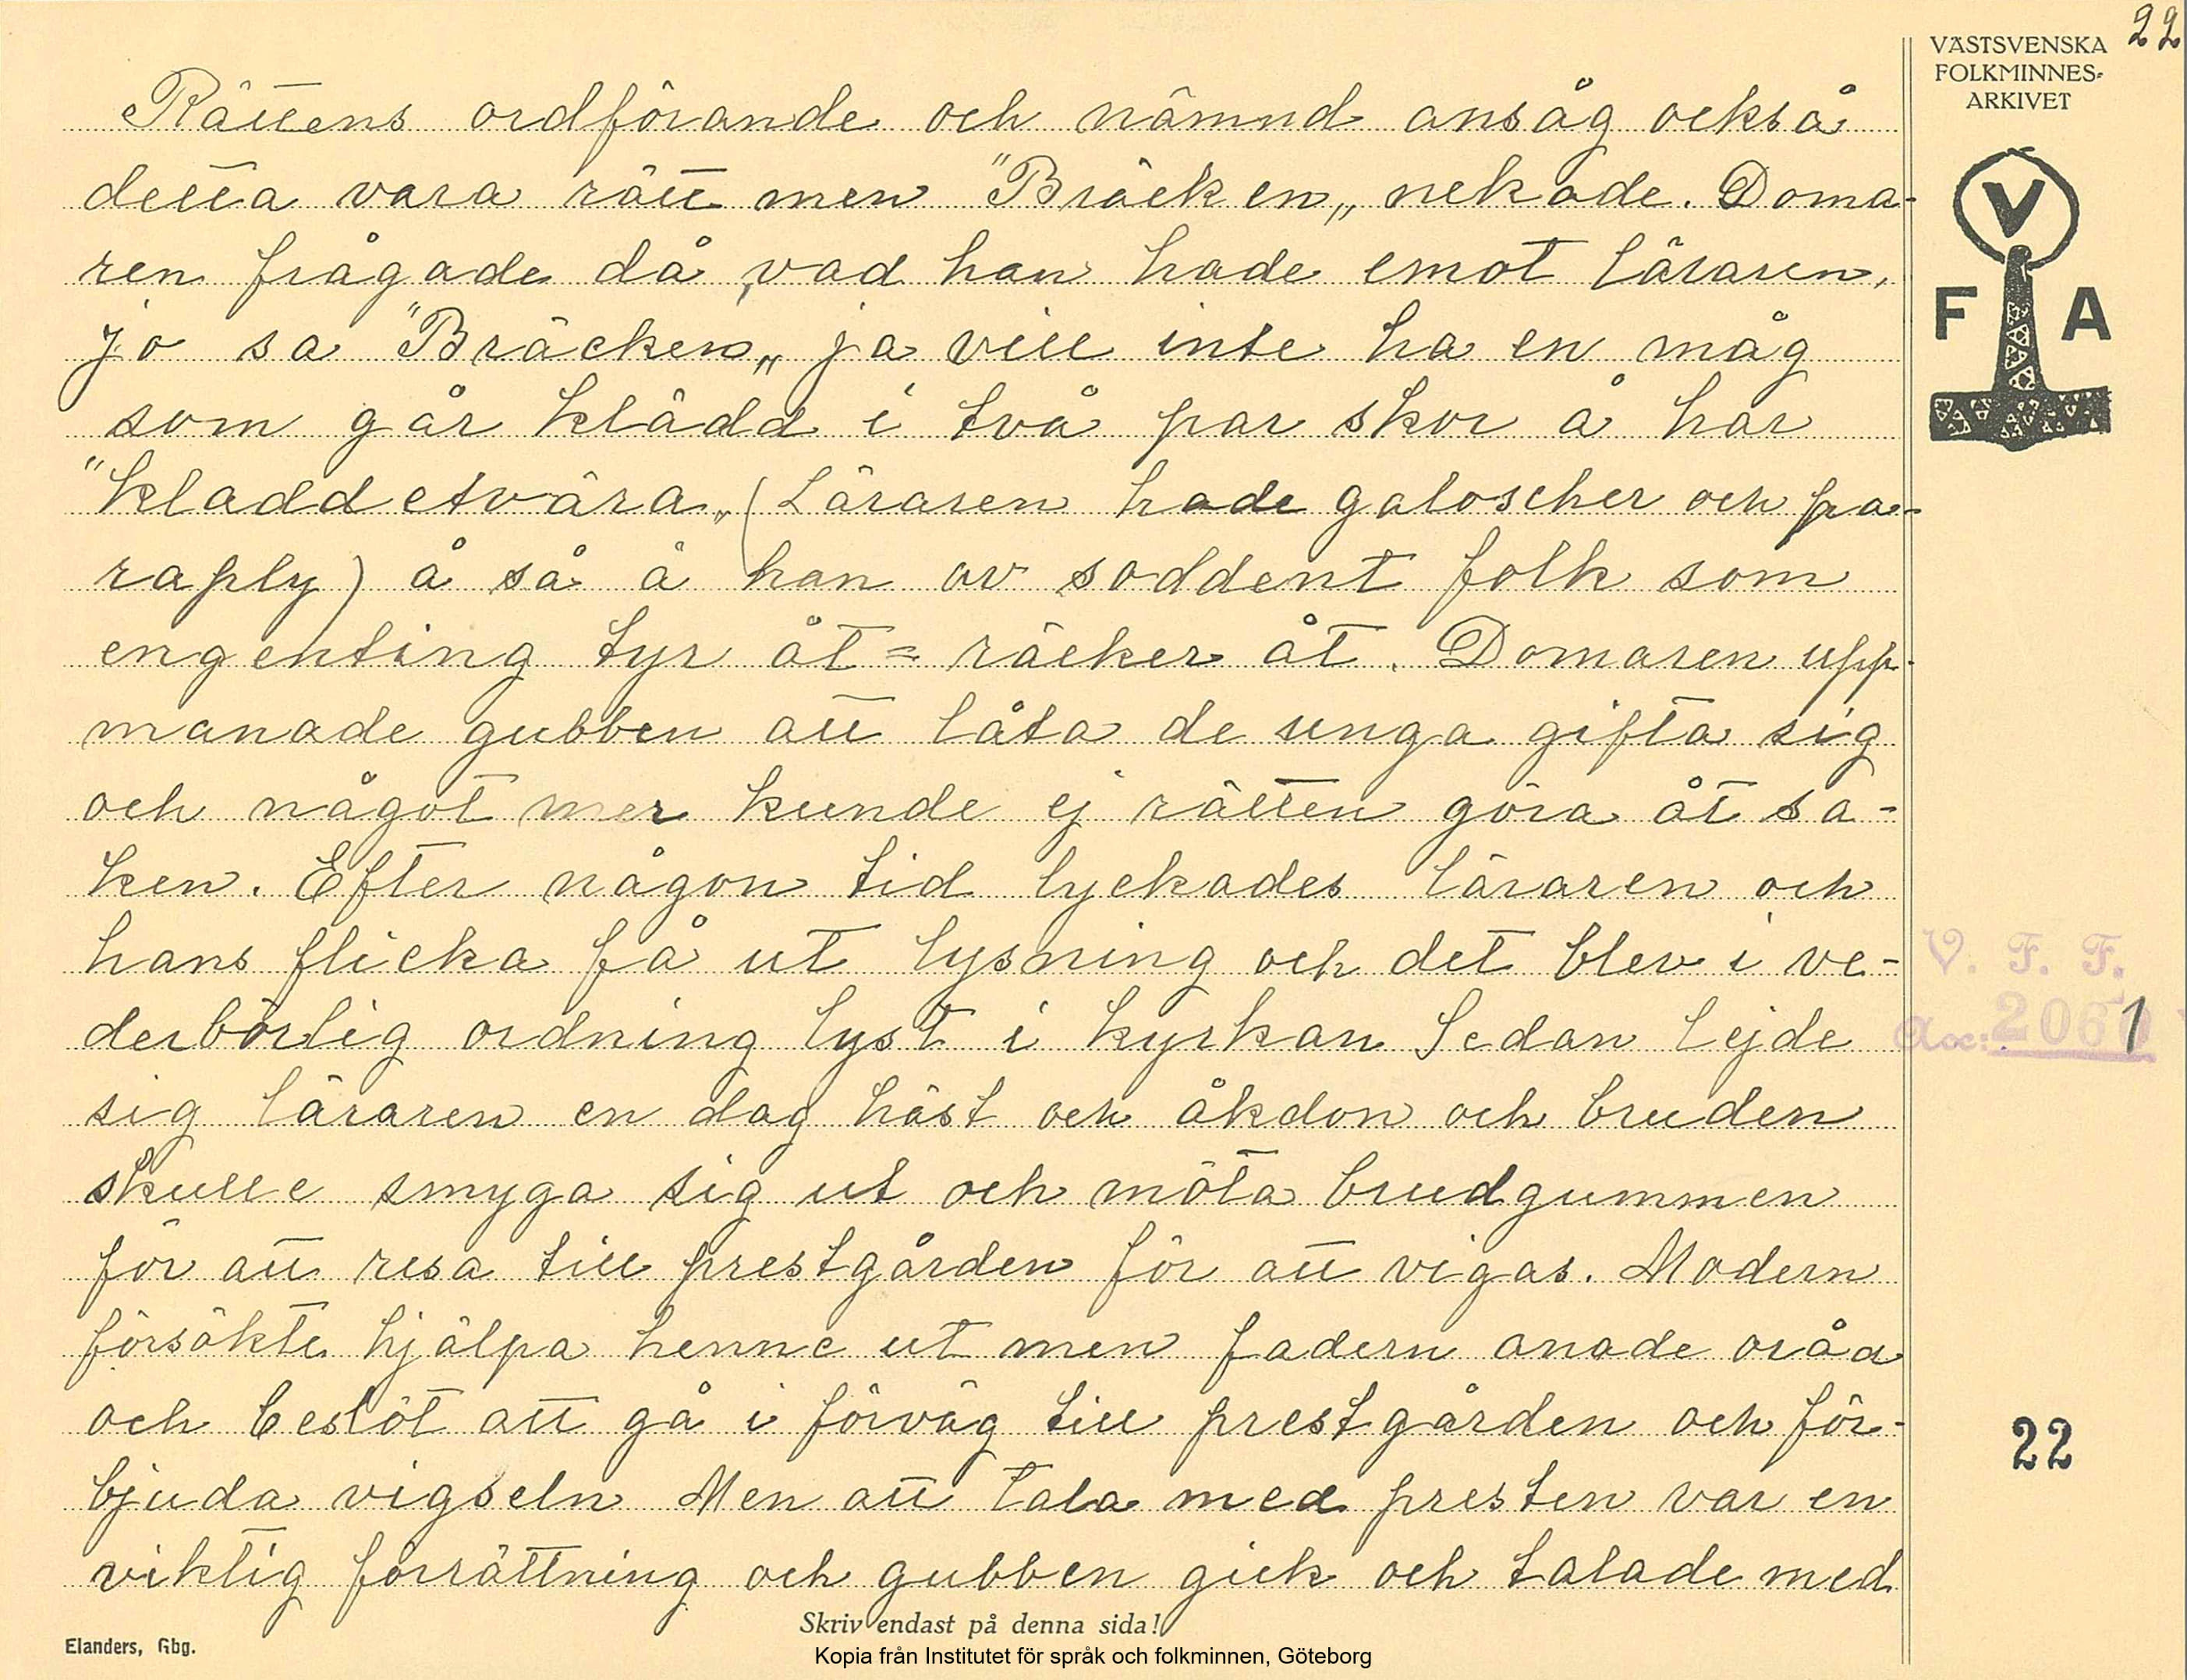 22
VÄSTSVENSKA
FOLKMINNES-
ARKIVET
V
F A
Rättens ordförande och nämnd ansåg också
detta vara rätt men "Bräcken„ nekade. Doma-
ren frågade då, vad han hade emot läraren,
jo sa "Bräcken„ ja vill inte ha en måg
som går klädd i två par skor å har
"kladdetvära„ (Läraren hade galoscher och pa-
raply) å så ä han av soddent folk som
engenting tyr åt = räcker åt. Domaren upp-
manade gubben att låta de unga gifta sig
och något mer kunde ej rätten göra åt sa-
ken. Efter någon tid lyckades läraren och
hans flicka få ut lysning och det blev i ve-
derbörlig ordning lyst i kyrkan Sedan lejde
sig läraren en dag häst och åkdon och bruden
skulle smyga sig ut och möta brudgummen
för att resa till prestgården för att vigas. Modern
försökte hjälpa henne ut men fadern anade oråd
och beslöt att gå i förväg till prestgården och för-
bjuda vigseln Men att tala med presten var en
viktig förrättning och gubben gick och talade med
V. F. F.
22
Skriv endast på denna sida!
Elanders, Gbg.
Kopia från Institutet för språk och folkminnen, Göteborg